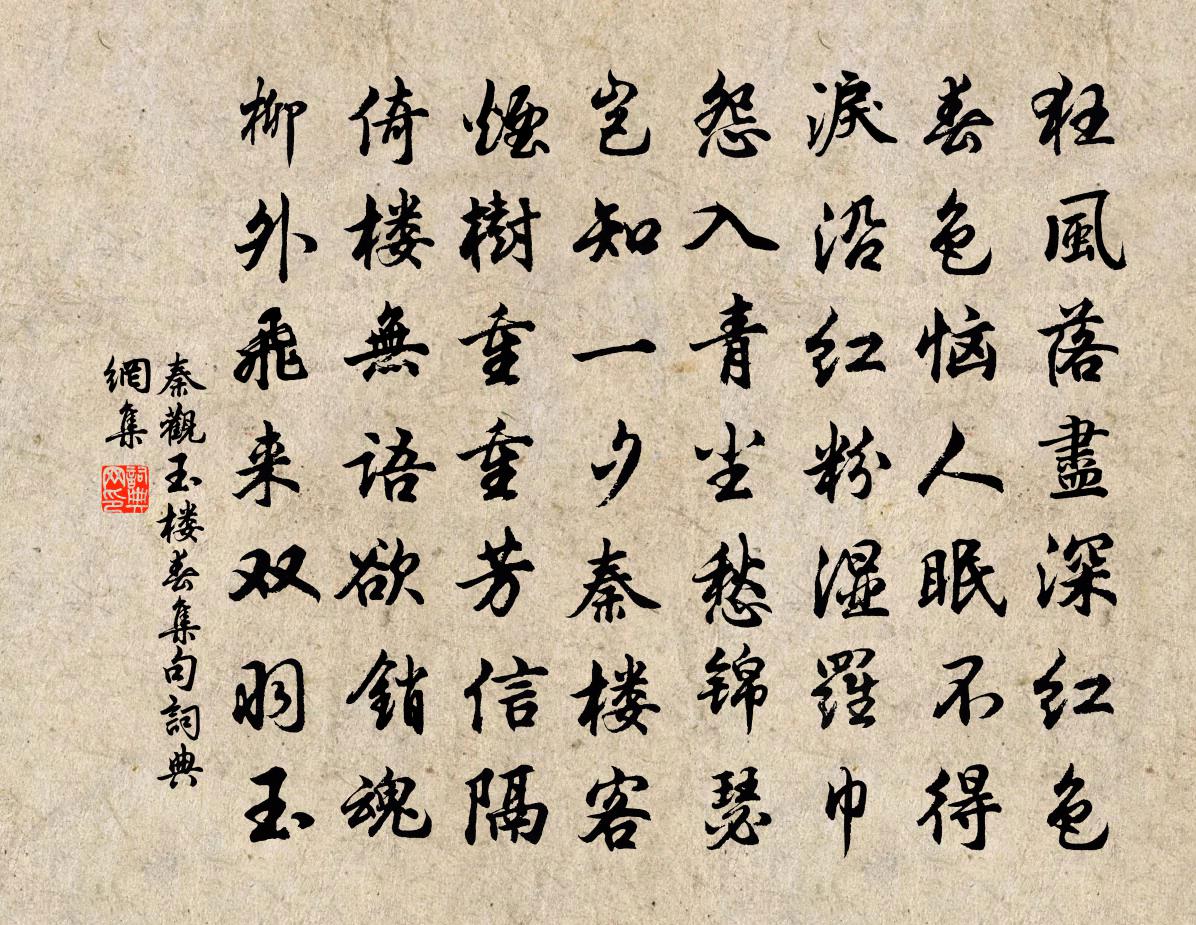 狂風落盡深红色
春色恼人眠不得
淚沿红粉濕羅巾
怨入青尘愁锦瑟
岂知一夕秦楼客
煙樹重重芳信隔
倚楼無语欲銷魂
柳外飛来双羽玉
秦觀玉楼春集句詞典
網集
詞典网印